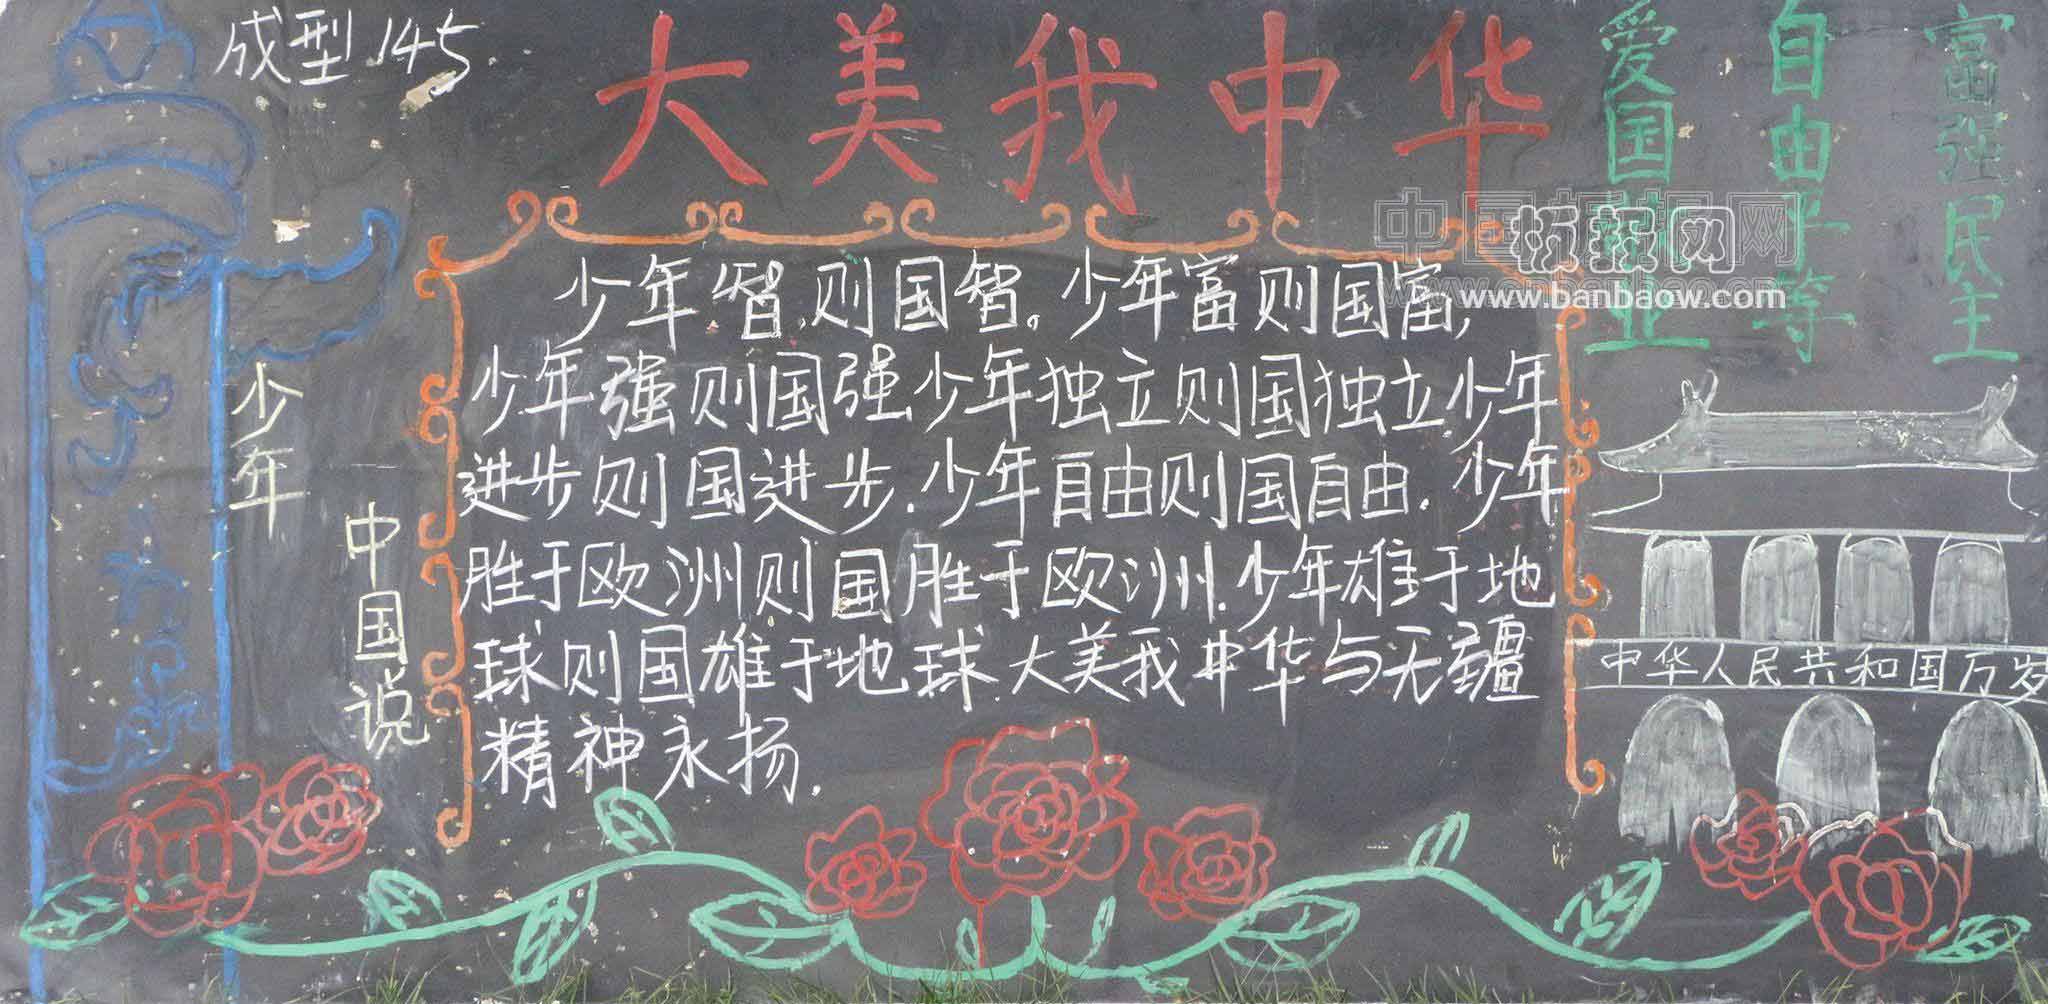 成型145
大美我中华
爱国敬业
自由平等
富强民主
中国板报网
www.banbaow.com
少年
中国说
少年智则国智。少年富则国富,
少年强则国强.少年独立则国独立.少年
进步则国进步.少年自由则国自由.少年
胜于欧洲则国胜于欧洲.少年雄于地
球则国雄于地球.大美我中华与无疆
精神永扬.
中华人民共和国万岁